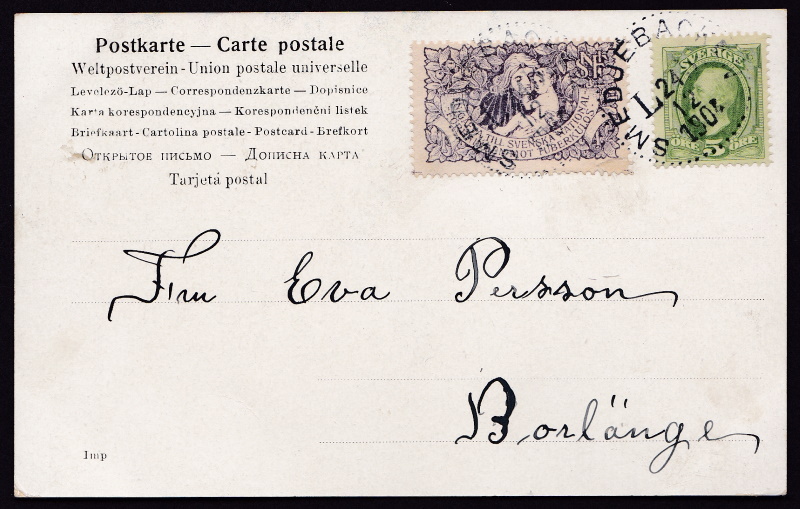 Postkarte — Carte postale
Weltpostverein - Union postale universelle
Levelező-Lap — Correspondenzkarte — Dopisnice
Karta korespondencyjna — Korespondenční listek
Briefkaart - Cartolina postale - Postcard - Brefkort
Открытое письмо — Дописна карта
Tarjeta postal
TILL SVENSKA NATIONAL
MOT TUBERKULOS
SMEDJEBACKEN
L
24
12
190
SVERIGE
5 ÖRE
Frn Eva Persson
Borlänge
Imp